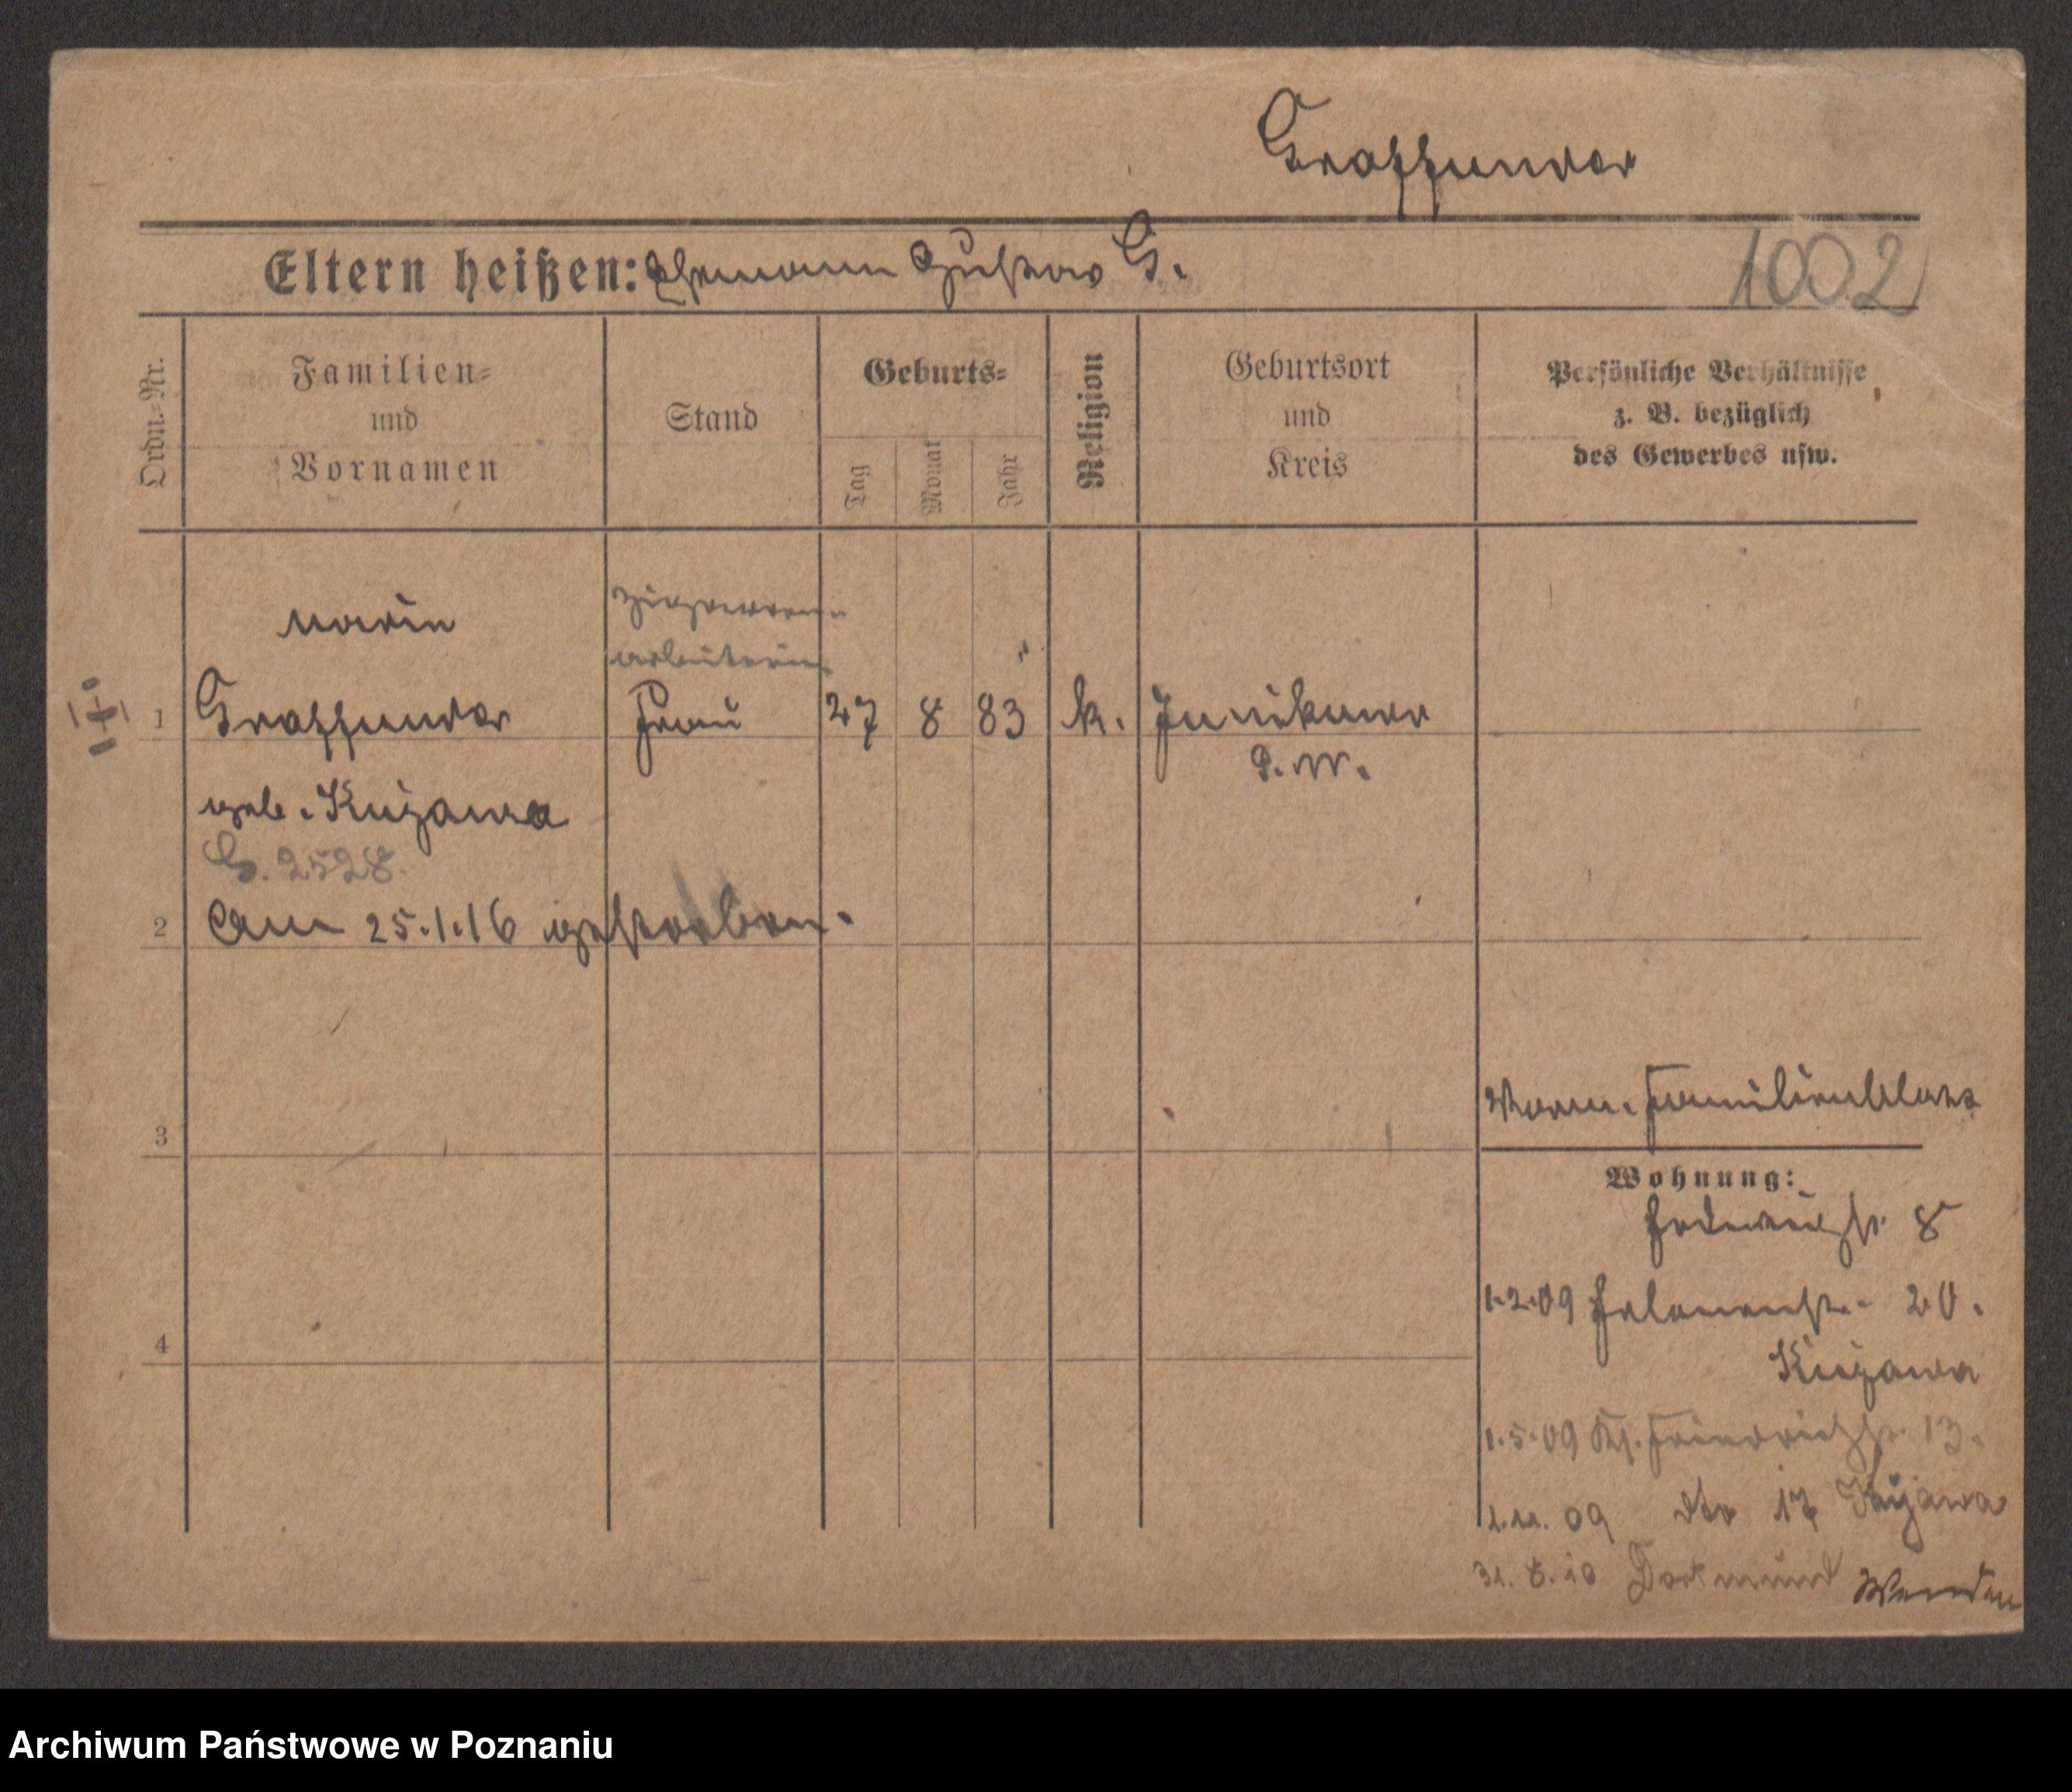 Graffunder
Eltern heißen: Ehemann Gustav G.
1002
Ordn.=Nr.
Familien=
und
Vornamen
Stand
Geburts=
Tag
Monat
Jahr
Religion
Geburtsort
und
Kreis
Persönliche Verhältnisse
z. B. bezüglich
des Gewerbes usw.
Marie
Zigarren
arbeiterin
1 Graffunder Frau 27 8 83 k. Junikowo
P. W.
geb. Kujawa
G. 2528.
2 Am 25.1.16 gestorben.
3
Familienblatt
Wohnung:
Hedwigstr. 8
1.2.09 Helenenstr. 20.
Kujawa
4
1.5.09 Friedrichstr. 13.
1.11.09 dto 17 Kujawa
31.8.10 Dortmund
Archiwum Państwowe w Poznaniu